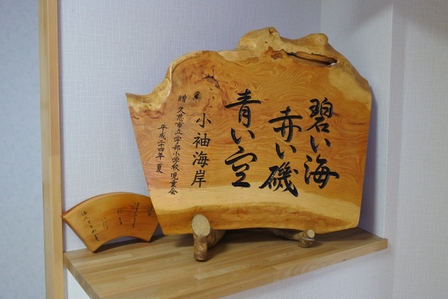 碧い海
赤い磯
青い空
小袖海岸
贈 久慈市立宇部小学校児童会
平成二十四年 夏